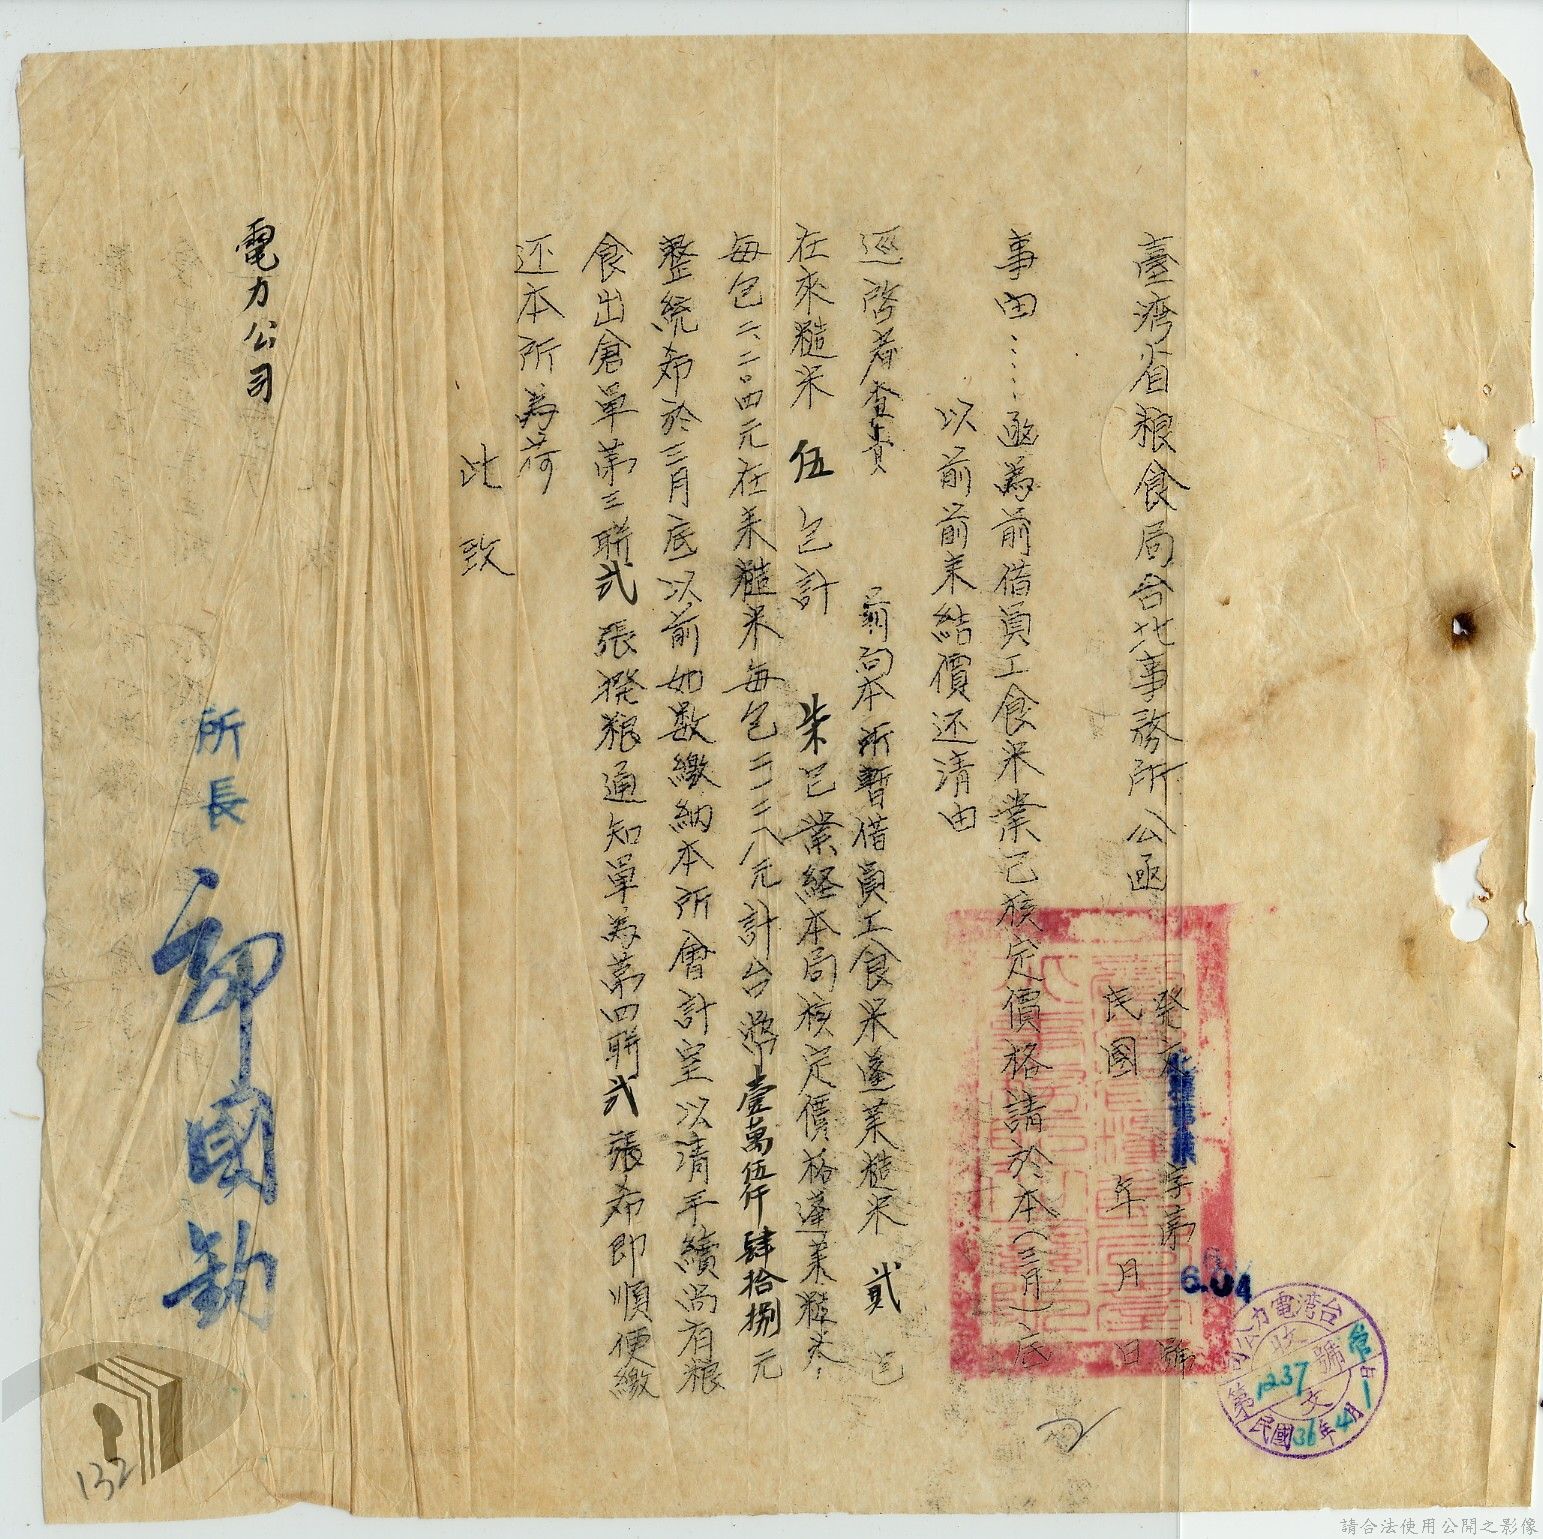 臺湾省粮食局台北事務所公函
發文北糧事業字第6.04號
民國　年　月　日
事由：……函為前借員工食米業已核定價格請於本(三月)底
以前前來結價还清由
逕啓者查貴　　前向本所暫借員工食米蓬莱糙米 貳 包
在來糙米 伍 包計 柒包業経本局核定價格蓬莱糙米
每包二、二〇四元在來糙米每包二二二八元計台幣壹萬伍仟肆拾捌元
整統希於三月底以前如数繳納本所會計室以清手續尚有粮
食出倉單第三聯弍張撥粮通知單為第四聯弍張希即順便繳
还本所為荷
此致
電力公司
所長
國鈞
台湾電力公司
收文
第1237號
民國36年4月1日
132
請合法使用公開之影像